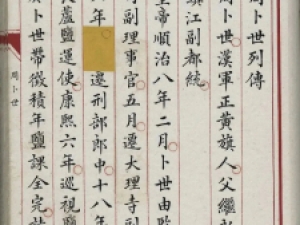 周卜世列傳
周卜世漢軍正黃旗人父繼
鎮江副都統
皇帝順治八年二月卜世由
副理事官五月遷大理寺副
年遷刑部郎中十八年
長蘆鹽運使康熙六年巡視鹽
卜世帶徵積年鹽課全完
周卜世